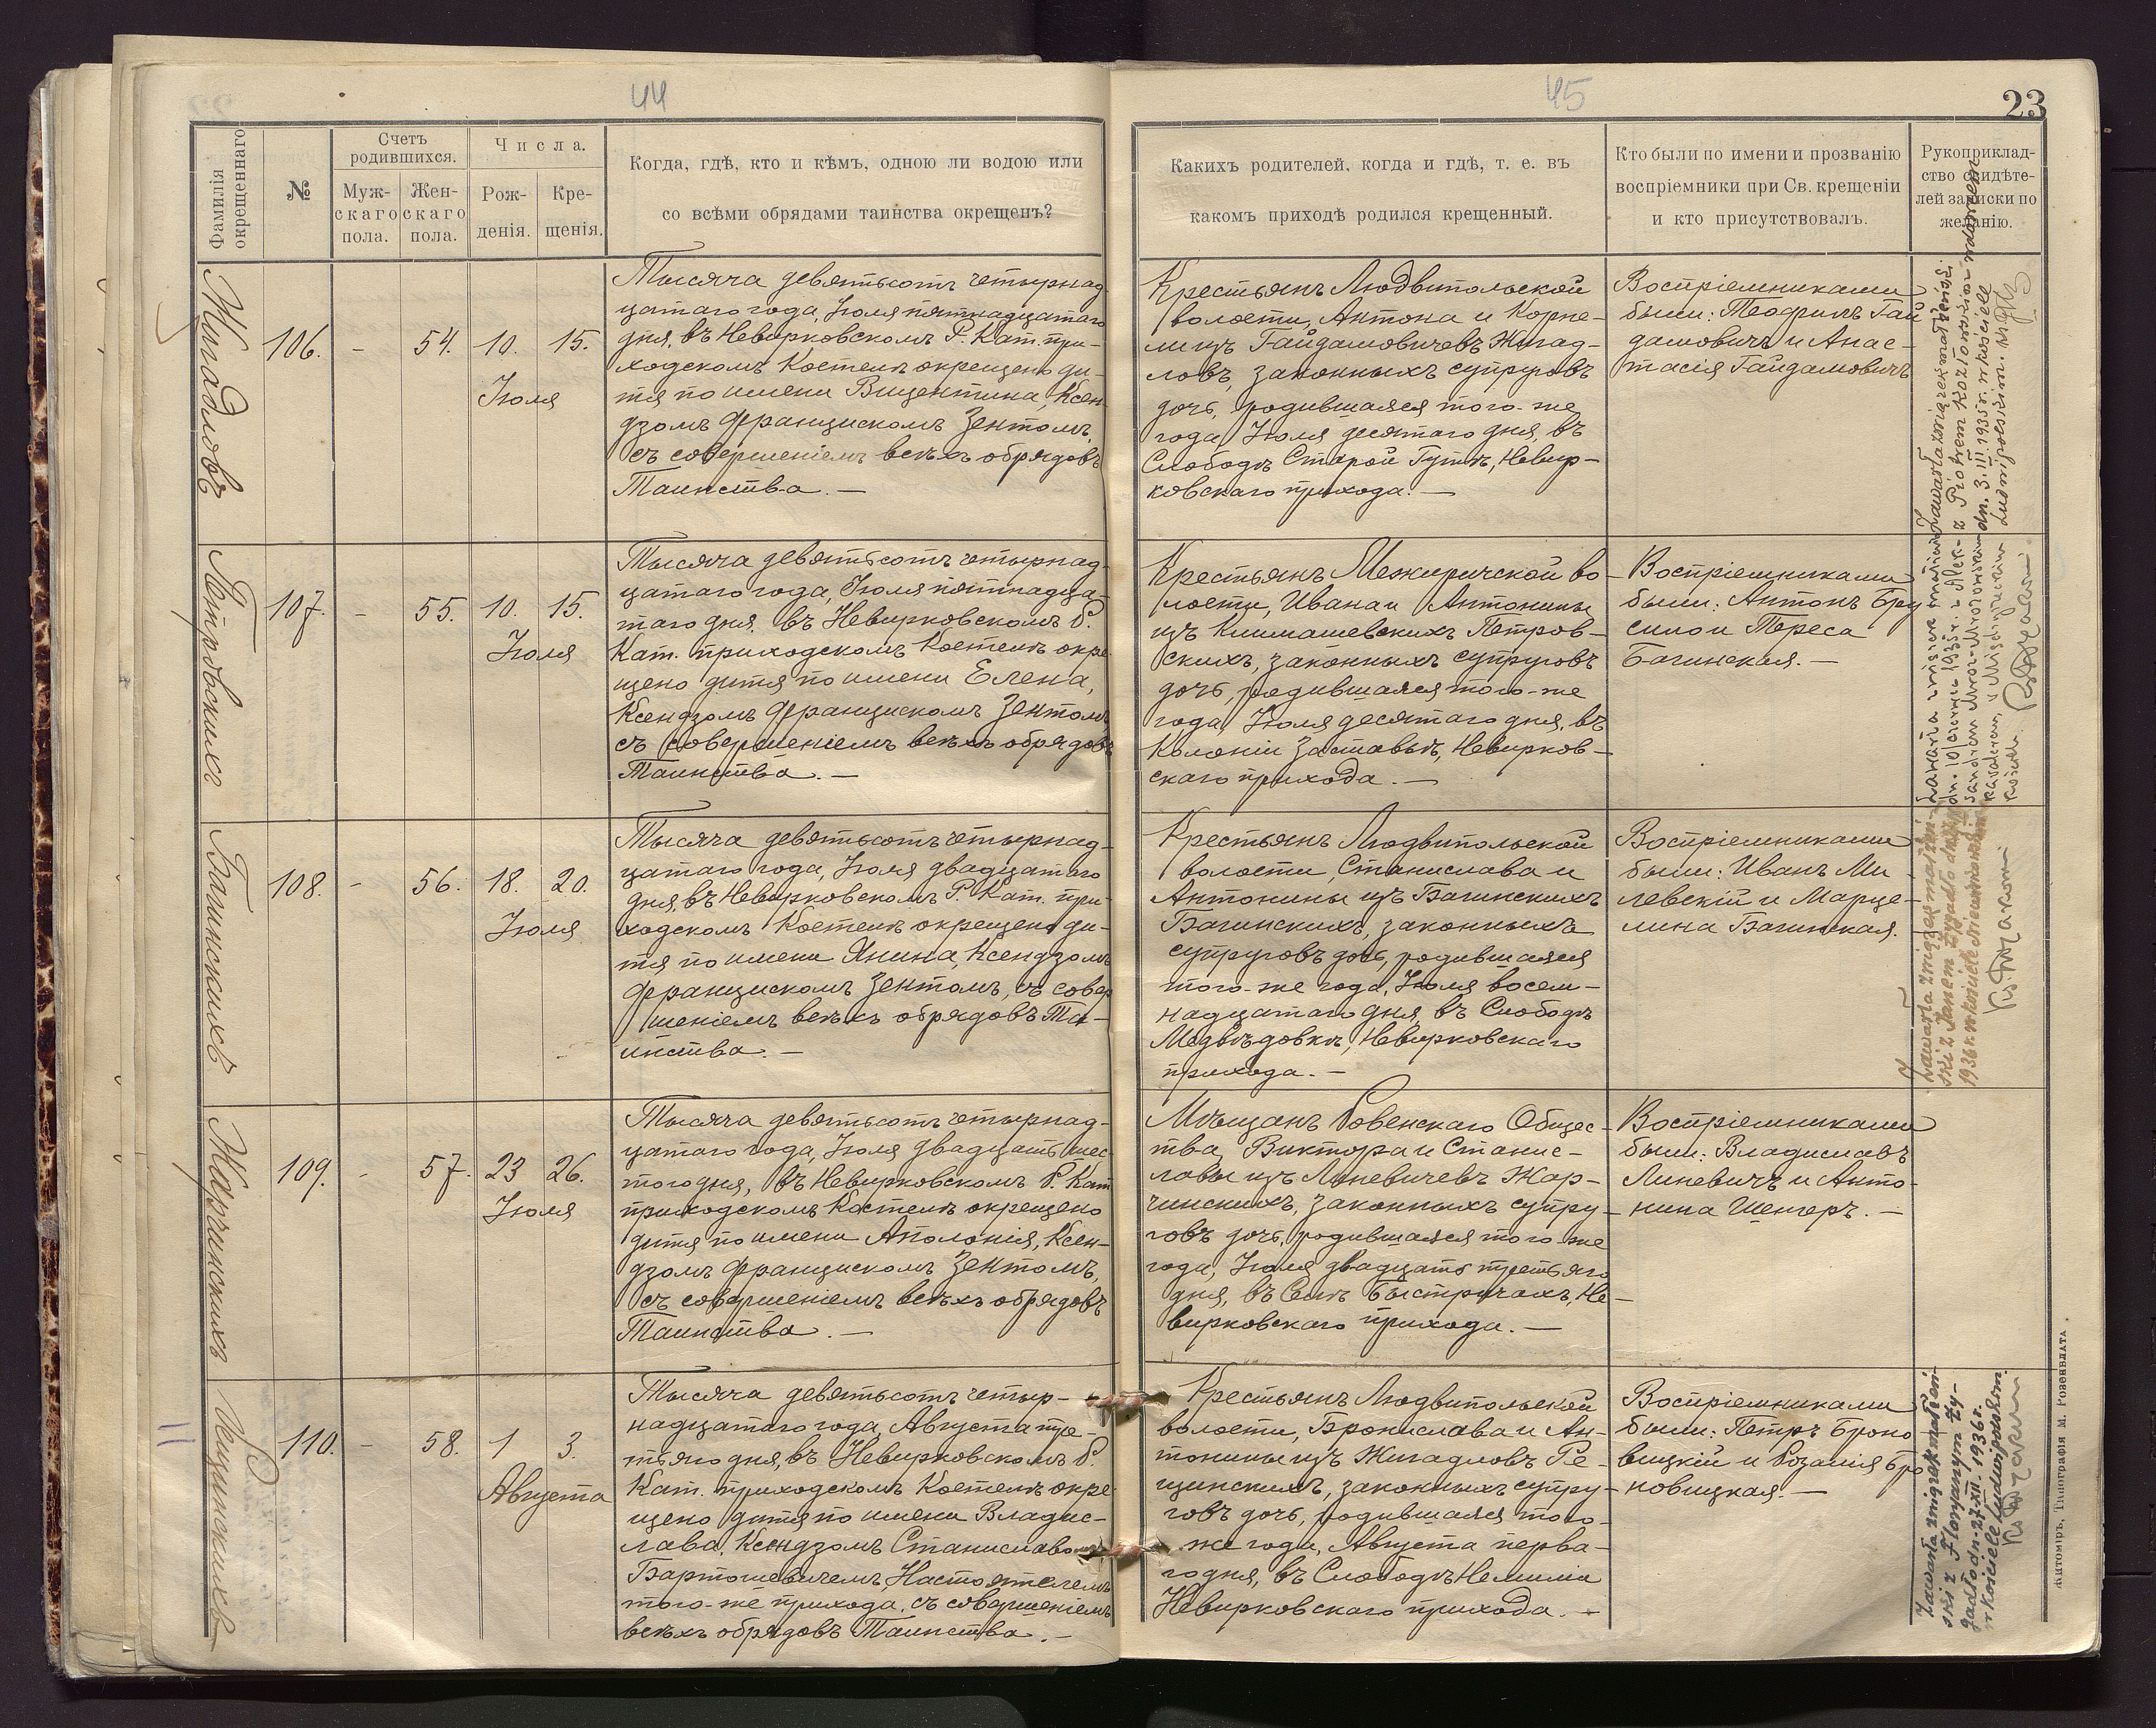 44
45
23
Фамилія окрещеннаго
№
Счетъ родившихся.
Муж-скаго пола.
Жен-скаго пола.
Числа.
Рож-денія.
Кре-щенія.
Когда, гдѣ, кто и кѣмъ, одною ли водою или
со всѣми обрядами таинства окрещенъ?
Какихъ родителей, когда и гдѣ, т. е. въ
какомъ приходѣ родился крещенный.
Кто были по имени и прозванію
воспріемники при Св. крещеніи
и кто присутствовалъ.
Рукоприклад-
ство свидѣте-
лей записки по
желанію.
Жигадловъ
106. - 54. 10. 15.
Іюля
Тысяча девятьсотъ четырнад-
цатаго года, Іюля пятнадцатаго
дня, въ Невирковскомъ Р. Кат. при-
ходскомъ Костелѣ окрещено ди-
тя по имени Вицентина, Ксен-
дзомъ Францискомъ Зентомъ,
съ совершеніемъ всѣхъ обрядовъ
Таинства. —
Крестьянъ Людвипольской
волости, Антона и Корне-
ліи изъ Гайдамовичевъ Жигад-
ловъ, законныхъ супруговъ
дочь, родившаяся того-же
года, Іюля десятаго дня, въ
Слободѣ Старой Гутѣ, Невир-
ковскаго прихода. —
Воспріемниками
были: Теофилъ Гай
дамовичъ и Анас-
тасія Гайдамовичъ
Петровскихъ
107. - 55. 10. 15.
Іюля
Тысяча девятьсотъ четырнад-
цатаго года, Іюля пятнадца-
таго дня, въ Невирковскомъ Р.
Кат. приходскомъ Костелѣ окре-
щено дитя по имени Елена,
Ксендзомъ Францискомъ Зентомъ
съ совершеніемъ всѣхъ обрядовъ
Таинства. —
Крестьянъ Межиричской во-
лости, Ивана и Антонины
изъ Климашевскихъ Петров-
скихъ, законныхъ супруговъ
дочь, родившаяся того-же
года, Іюля десятаго дня, въ
Колоніи Заставьѣ, Невирков-
скаго прихода. —
Воспріемниками
были: Антонъ Бру
сило и Тереса
Багинская. —
Багинскихъ
108. - 56. 18. 20.
Іюля
Тысяча девятьсотъ четырнад-
цатаго года, Іюля двадцатаго
дня, въ Невирковскомъ Р. Кат. при-
ходскомъ Костелѣ окрещено ди-
тя по имени Янина, Ксендзомъ
Францискомъ Зентомъ, съ совер-
шеніемъ всѣхъ обрядовъ Та-
инства. —
Крестьянъ Людвипольской
волости, Станислава и
Антонины изъ Багинскихъ
Багинскихъ, законныхъ
супруговъ дочь, родившаяся
того-же года, Іюля восем-
надцатаго дня, въ Слободѣ
Медвѣдовкѣ, Невирковскаго
прихода. —
Воспріемниками
были: Иванъ Ми-
левскій и Марце-
лина Багинская.
Жарчинскихъ
109. - 57. 23 26.
Іюля
Тысяча девятьсотъ четырнад-
цатаго года, Іюля двадцать шес-
того дня, въ Невирковскомъ Р. Кат
приходскомъ Костелѣ окрещено
дитя по имени Аполонія, Ксен-
дзомъ Францискомъ Зентомъ,
съ совершеніемъ всѣхъ обрядовъ
Таинства. —
Мѣщанъ Ровенскаго Общес-
тва, Виктора и Станис-
лавы изъ Линевичевъ Жар-
чинскихъ, законныхъ супру-
говъ дочь, родившаяся того-же
года, Іюля двадцать третьяго
дня, въ Селѣ Быстричахъ, Не-
вирковскаго прихода. —
Воспріемниками
были: Владиславъ
Линевичъ и Анто-
нина Шенгеръ. —
Рещинскихъ
110. - 58. 1 3.
Августа
Тысяча девятьсотъ четыр-
надцатаго года, Августа тре-
тьяго дня, въ Невирковскомъ Р.
Кат. приходскомъ Костелѣ окре-
щено дитя по имени Владис-
лава, Ксендзомъ Станиславомъ
Бартошевичемъ, Настоятелемъ
того-же прихода, съ совершеніемъ
всѣхъ обрядовъ Таинства. —
Крестьянъ Людвипольской
волости, Бронислава и Ан-
тонины изъ Жигадловъ Ре-
щинскихъ, законныхъ супру-
говъ дочь, родившаяся того-
же года, Августа перва-
го дня, въ Слободѣ Нелиліи
Невирковскаго прихода. —
Воспріемниками
были: Петръ Броно
вицкій и Розалія Бро
новицкая. —
Zawarła związek małżeński
z Piotrem Kozłowskim
dn. 3. III 1935 r. w kościele
Ludwipolskim.
Zawarła związek małżeń-
ski z Janem
1936 r. w kościele
Zawarła związek małżeń-
ski z Florjanym Ży-
gadło dn. 27. XII. 1936 r.
w kościele Ludwipolskim.
Житомиръ, Типографія М. Розенблата.